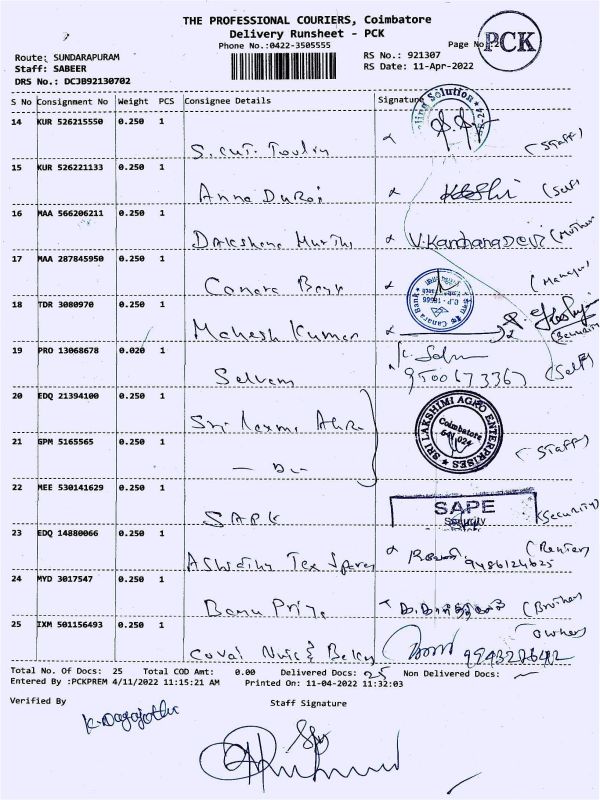 THE PROFESSIONAL COURIERS, Coimbatore
Delivery Runsheet - PCK
Phone No.:0422-3505555
Page No.:
PCK
Route: SUNDARAPURAM
Staff: SABEER
DRS No.: DCJB92130702
RS No.: 921307
RS Date: 11-Apr-2022
S No Consignment No Weight PCS Consignee Details Signature
14 KUR 526215550 0.250 1
(Staff)
15 KUR 526221133 0.250 1
Anna Durai
(Self)
16 MAA 566206211 0.250 1
Dakshana Murthi V.KanchanaDevi (Mother)
17 MAA 287845950 0.250 1
Canara Bank (Manager)
18 TDR 3080970 0.250 1
Mahesh Kumar (Security)
19 PRO 13068678 0.020 1
Selvam 9500673367 (Self)
20 EDQ 21394100 0.250 1
SRI LAKSHIMI AGRO ENTERPRISES
Coimbatore
641 024
21 GPM 5165565 0.250 1
(Staff)
22 MEE 530141629 0.250 1
SAPE
Security
(Security)
23 EDQ 14880066 0.250 1
9486124625
24 MYD 3017547 0.250 1
Banu Priya (Brother)
25 IXM 501156493 0.250 1
(owner)
Covai Nuts & Bakery 9943286482
Total No. Of Docs: 25 Total COD Amt: 0.00 Delivered Docs: 25 Non Delivered Docs: —
Entered By :PCKPREM 4/11/2022 11:15:21 AM Printed On: 11-04-2022 11:32:03
Verified By Staff Signature